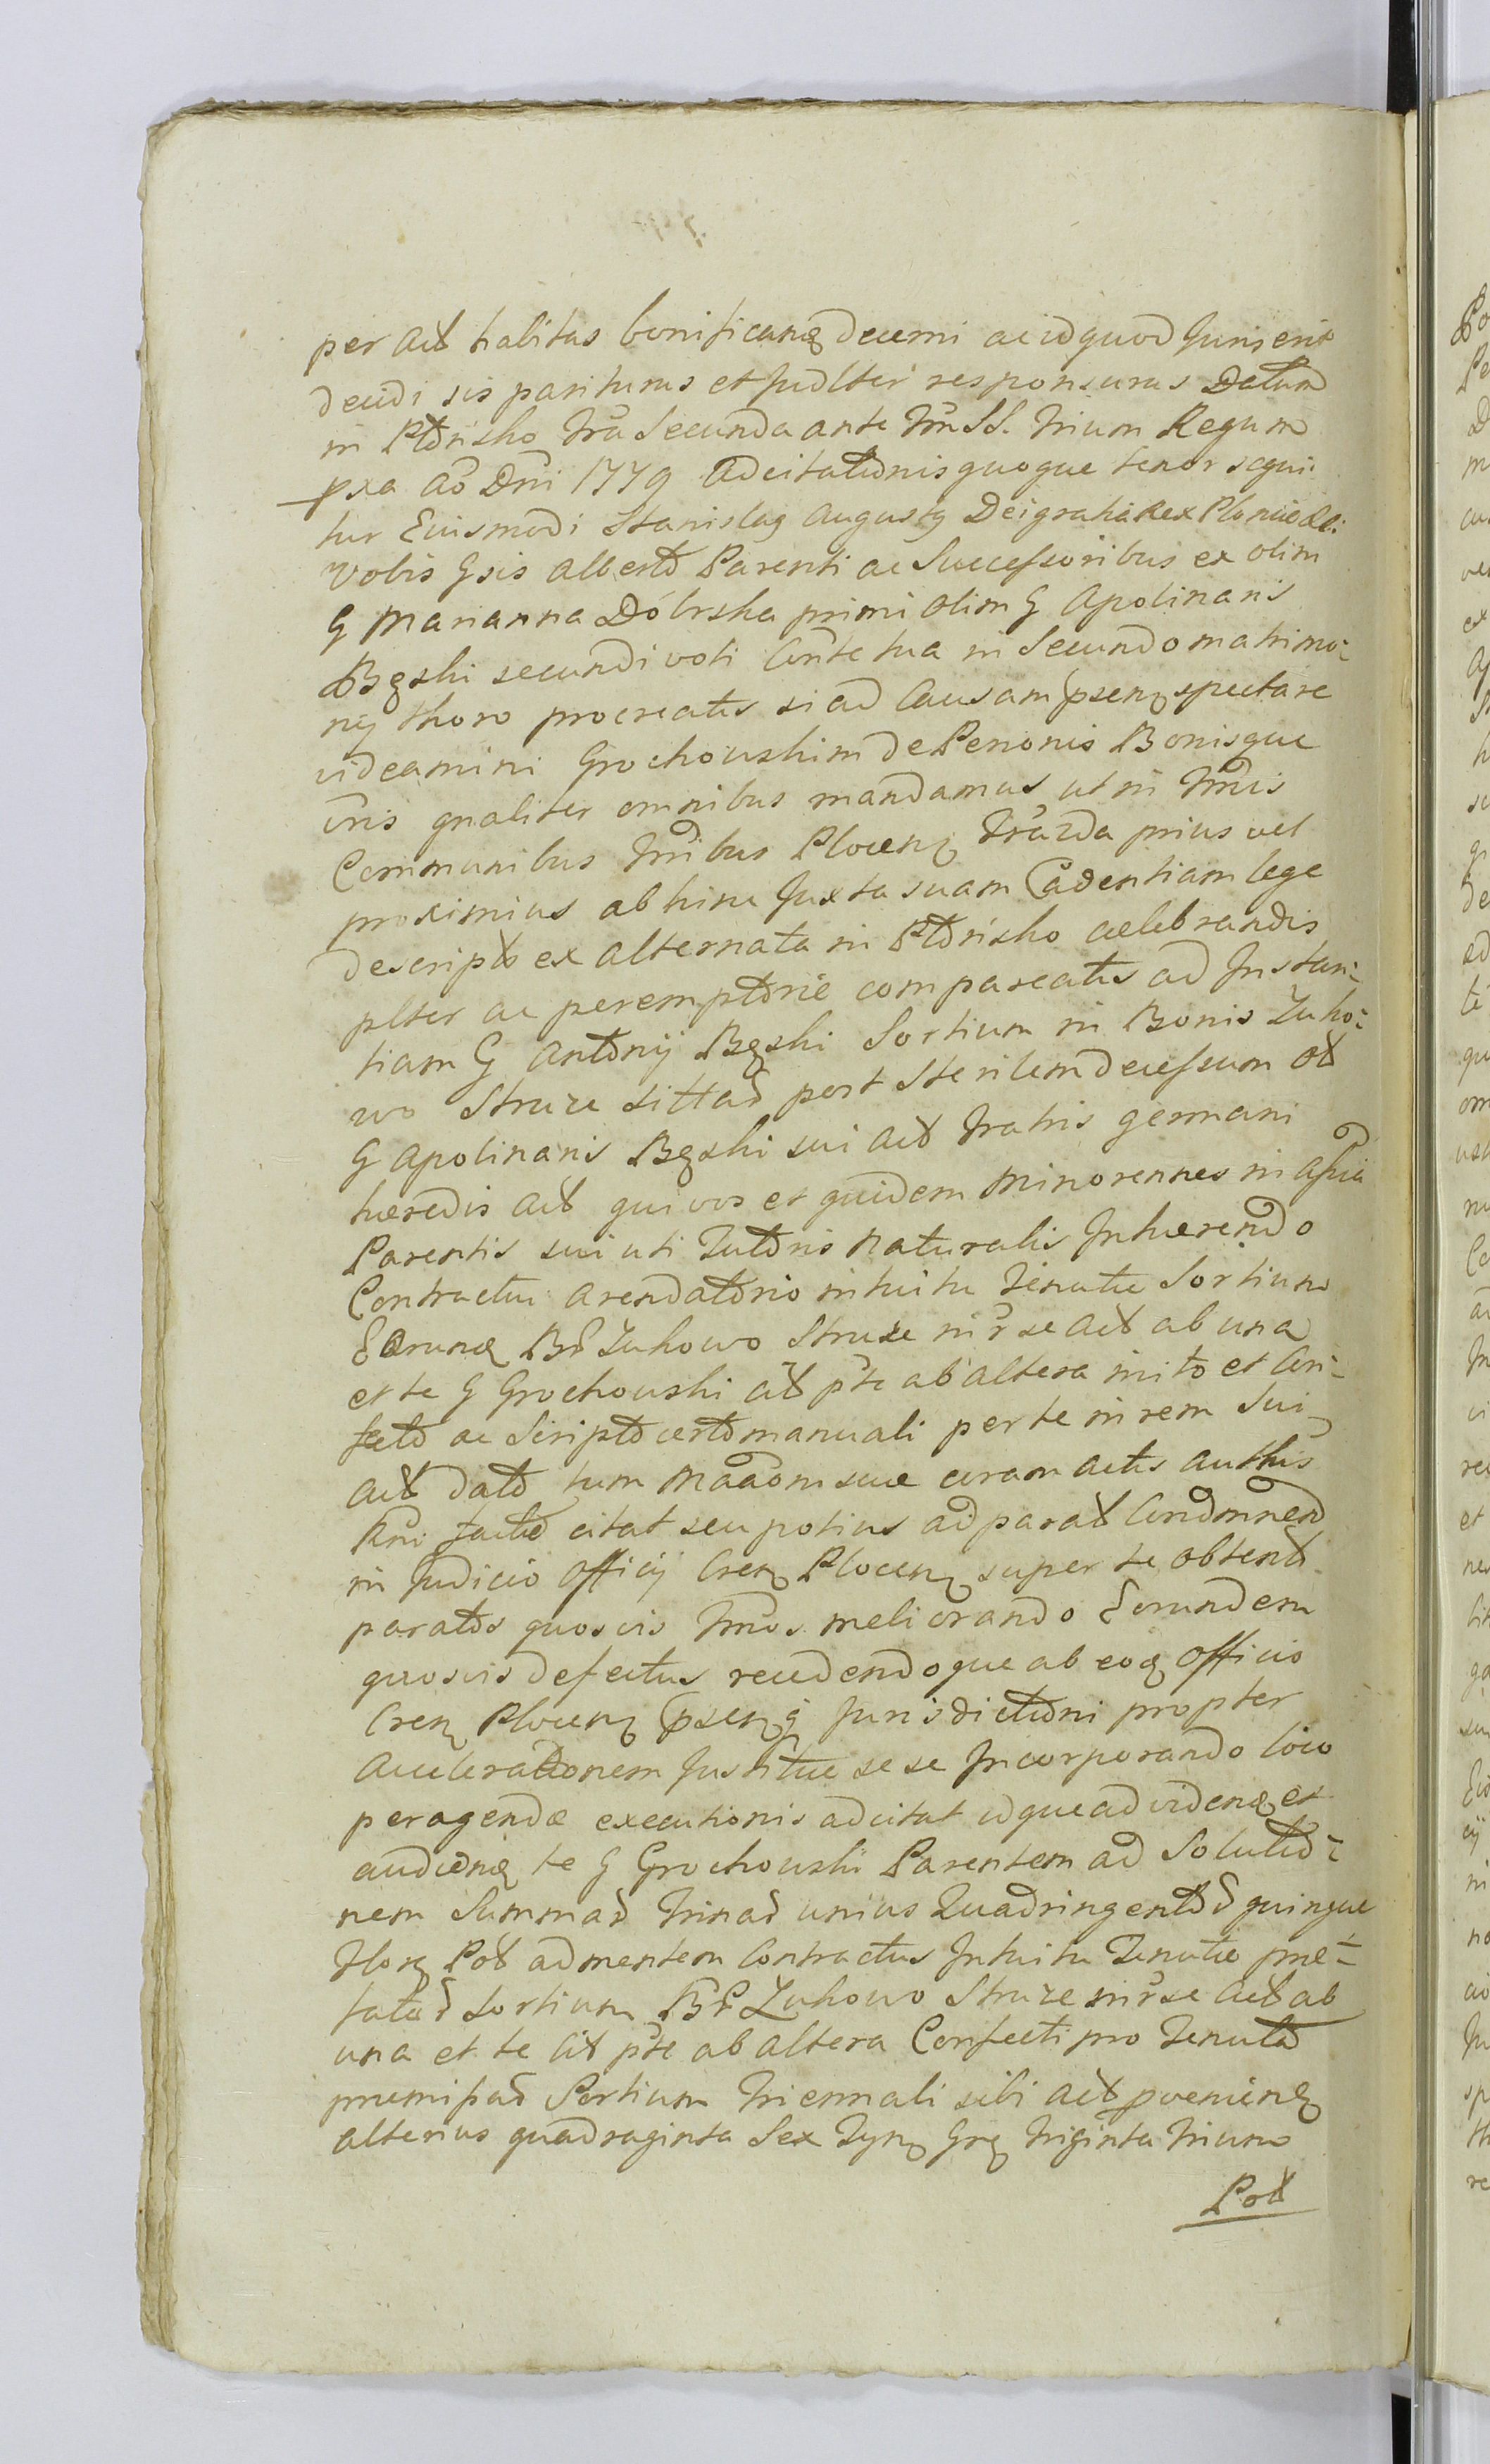 per Act habitas bonificanđ decerni ac id quod Juris erit
decidi sis pariturus et Judlter responsurus Datum
in Ptōrisko Fria Secunda ante Fm SS. Trium Regum
pxa Aō Dni 1779 Adcitationis quoque tenor sequi-
tur Eiusmodi Stanislaq Augustq Dei gratia Rex Ploniæ &c:
Vobis Gsis Alberto Parenti ac Successoribus ex olim
G Marianna Dóbrska primi olim G Apolinaris
Bgski secundi voti Cnte tua in Secundo matrimo-
nij thoro procreatis si ad Causam psenq spectare
videamini Grochowskim de Personis Bonisque
vris gnaliter omnibus mandamus ut in Tmis
Communibus Trribus Plocenq Fria 2da prius vel
proximius abhinc Juxta suam Cadentiam lege
descripto ex alternata in Ptōrisko celebrandis
plter ac peremptorie compareatis ad Instan-
tiam G Antonij Bgski Sortium in Bonis Zuko-
wo Struze sittað post Sterilem decessum ol
G Apolinaris Bgski sui act Fratris germani
hæredis Act qui vos et quidem minorennes in assia
Parentis sui uti Tutoris naturalis Inhærendo
Contractui arendatorio intuitu Tenutæ Sortium
Eorunđ BB Zukowo Struze inr se Act ab una
et te G Grochowski cit pte ab altera inito et Con-
fecto ac Scripto certo manuali per te in rem Sui
act dato tum Maaōni suæ coram actis authis
Rni factæ citat seu potius ad parat Condmned
in Judicio Officij Cren Plocen super te obtent
paratos quosvis Tmos meliorando Eorundem
quosvis defectus recedendoque ab eođ Officio
Cren Plocen psenq Jurisdictioni propter
Accelerationem Justitiæ sese Incorporando loco
peragendæ executionis adcitat idque ad videnđ et
audienđ te G Grochowski Parentem ad Solutio-
nem Summað Trinað unius Quadringentoð quinque
Flor Pol ad mentem Contractus Intuitu Tenutæ præ-
fatað Sortium BB Zukowo Struze inr se Act ab
una et te Cit pte ab altera Confecti pro Tenuta
præmissað Sortium Triennali sibi Act pvenienđ
alterius quadraginta Sex Tyn Grq triginta trium
Pol